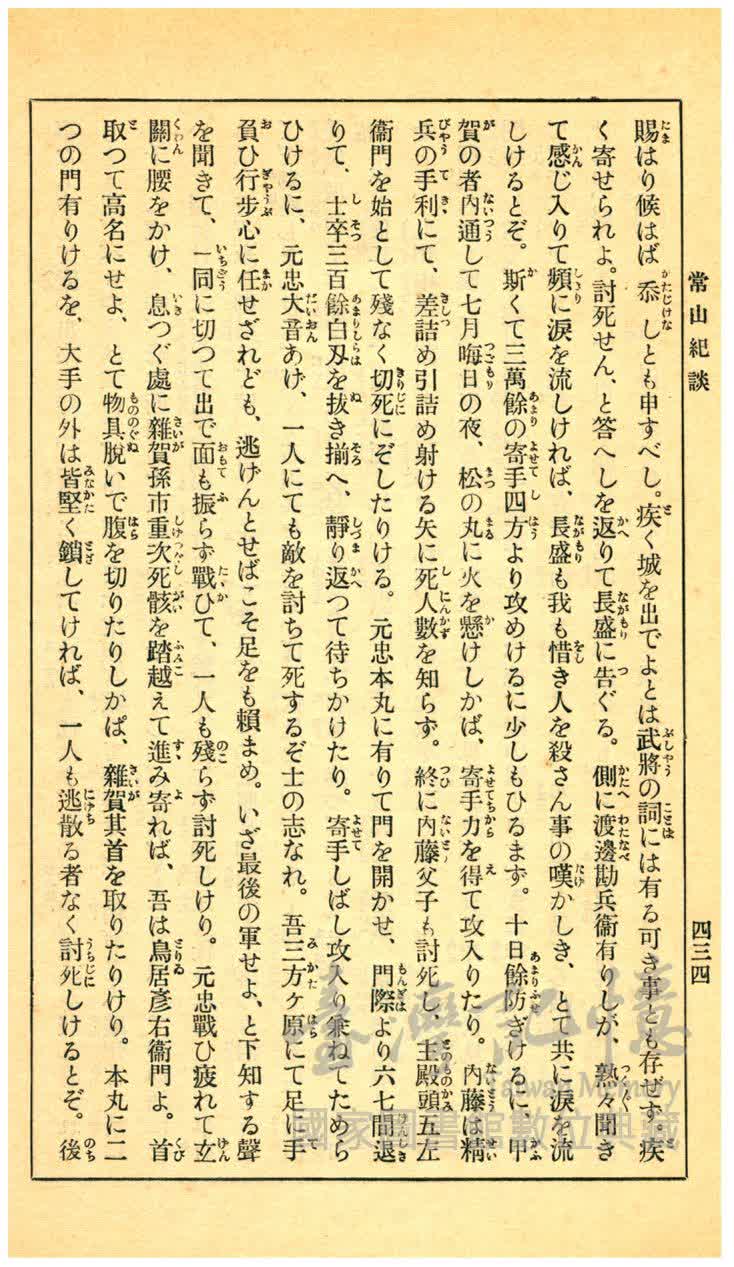 常山紀談
四三四
賜はり候はば忝しとも申すべし。疾く城を出でよとは武將の詞には有る可き事とも存ぜず。疾
く寄せられよ。討死せん、と答へしを返りて長盛に告ぐる。側に渡邊勘兵衞有りしが、熟々聞き
て感じ入りて頻に涙を流しければ、長盛も我も惜き人を殺さん事の嘆かしき、とて共に涙を流
しけるとぞ。斯くて三萬餘の寄手四方より攻めけるに少しもひるまず。十日餘防ぎけるに、甲
賀の者內通して七月晦日の夜、松の丸に火を懸けしかば、寄手力を得て攻入りたり。內藤は精
兵の手利にて、差詰め引詰め射ける矢に死人數を知らず。終に內藤父子も討死し、主殿頭五左
衞門を始として殘なく切死にぞしたりける。元忠本丸に有りて門を開かせ、門際より六七間退
りて、士卒三百餘白刄を拔き揃へ、靜り返つて待ちかけたり。寄手しばし攻入り兼ねてためら
ひけるに、元忠大音あげ、一人にても敵を討ちて死するぞ士の志なれ。吾三方ヶ原にて足に手
負ひ行步心に任せざれども、逃げんとせばこそ足をも賴まめ。いざ最後の軍せよ、と下知する聲
を聞きて、一同に切つて出で面も振らず戰ひて、一人も殘らず討死しけり。元忠戰ひ疲れて玄
關に腰をかけ、息つぐ處に雜賀孫市重次死骸を踏越えて進み寄れば、吾は鳥居彥右衞門よ。首
取つて高名にせよ、とて物具脫いで腹を切りたりしかば、雜賀其首を取りたりけり。本丸に二
つの門有りけるを、大手の外は皆堅く鎖してければ、一人も逃散る者なく討死しけるとぞ。後
臺灣記憶
Taiwan Memory
國家圖書館數位典藏